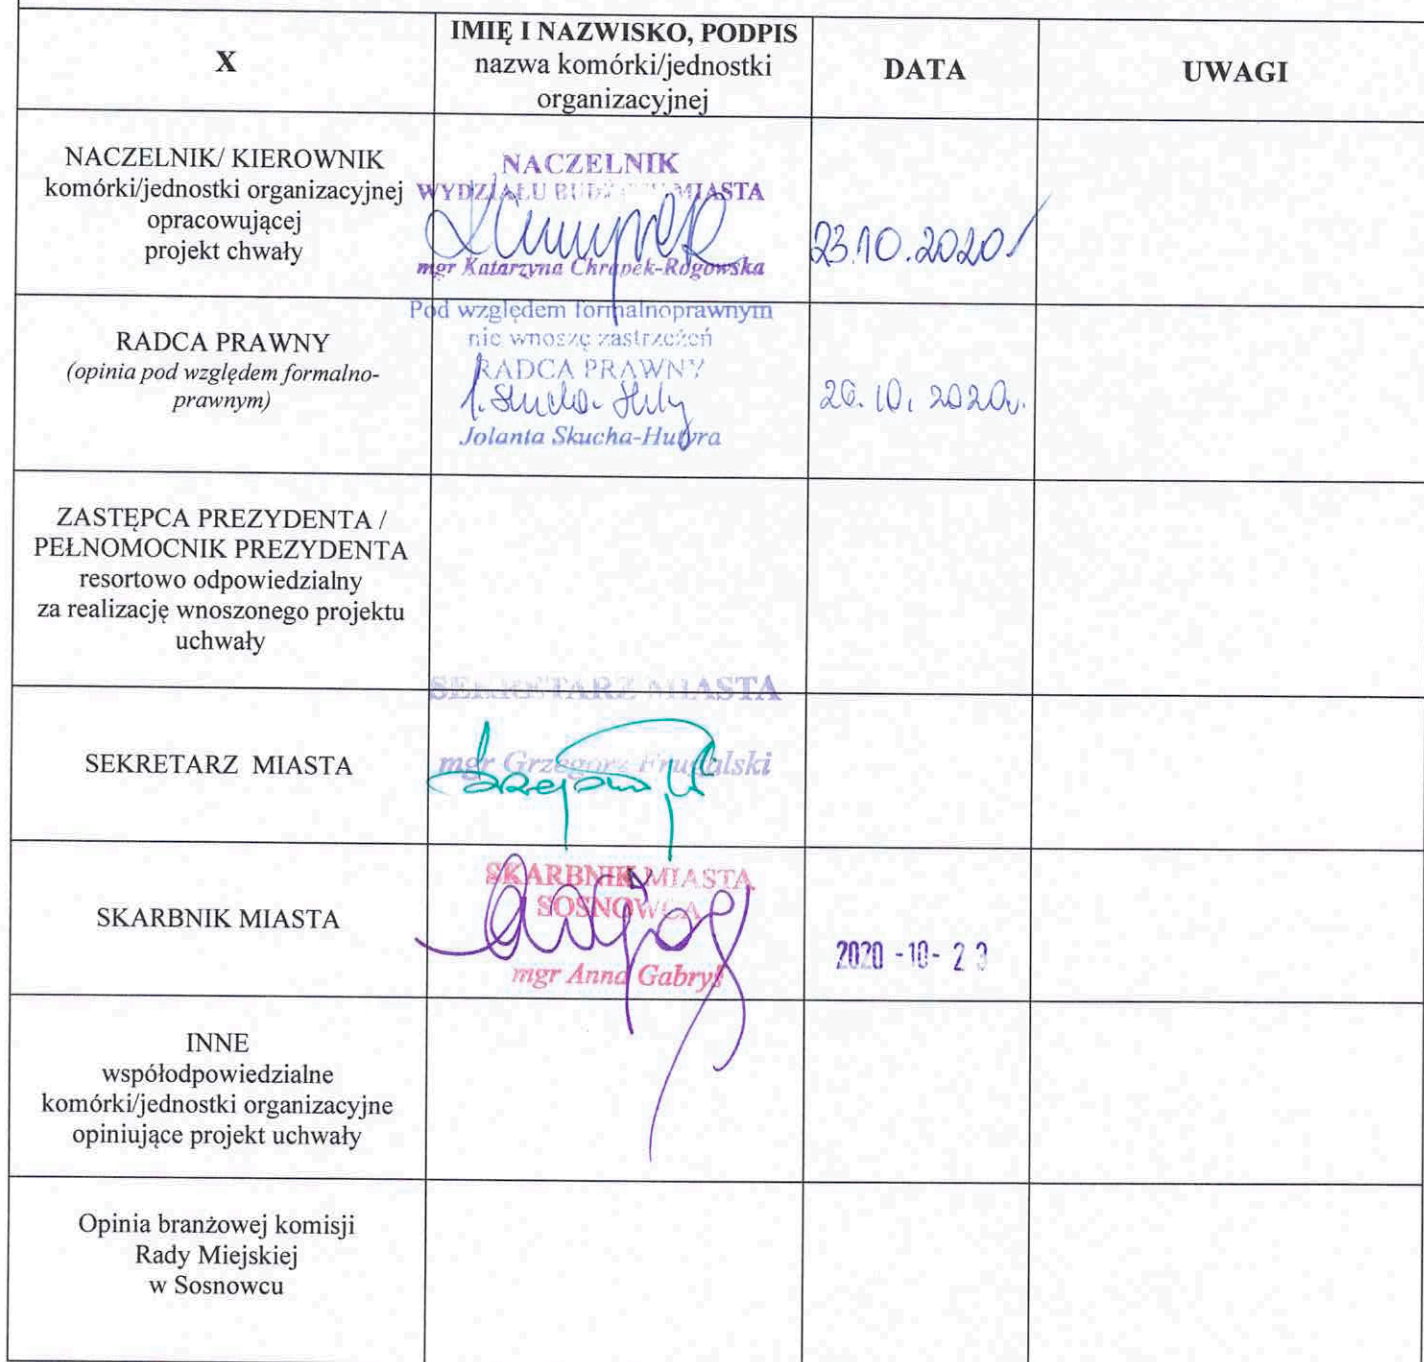 X
IMIĘ I NAZWISKO, PODPIS
nazwa komórki/jednostki
organizacyjnej
DATA
UWAGI
NACZELNIK/ KIEROWNIK
komórki/jednostki organizacyjnej
opracowującej
projekt chwały
NACZELNIK
WYDZIAŁU BUDŻETU MIASTA
mgr Katarzyna Chrapek-Rogowska
23.10.2020
RADCA PRAWNY
(opinia pod względem formalno-
prawnym)
Pod względem formalnoprawnym
nie wnoszę zastrzeżeń
RADCA PRAWNY
Jolanta Skucha-Hutyra
26.10.2020r.
ZASTĘPCA PREZYDENTA /
PEŁNOMOCNIK PREZYDENTA
resortowo odpowiedzialny
za realizację wnoszonego projektu
uchwały
SEKRETARZ MIASTA
SEKRETARZ MIASTA
mgr Grzegorz Frugalski
SKARBNIK MIASTA
SKARBNIK MIASTA
SOSNOWCA
mgr Anna Gabryś
2020 -10- 23
INNE
współodpowiedzialne
komórki/jednostki organizacyjne
opiniujące projekt uchwały
Opinia branżowej komisji
Rady Miejskiej
w Sosnowcu